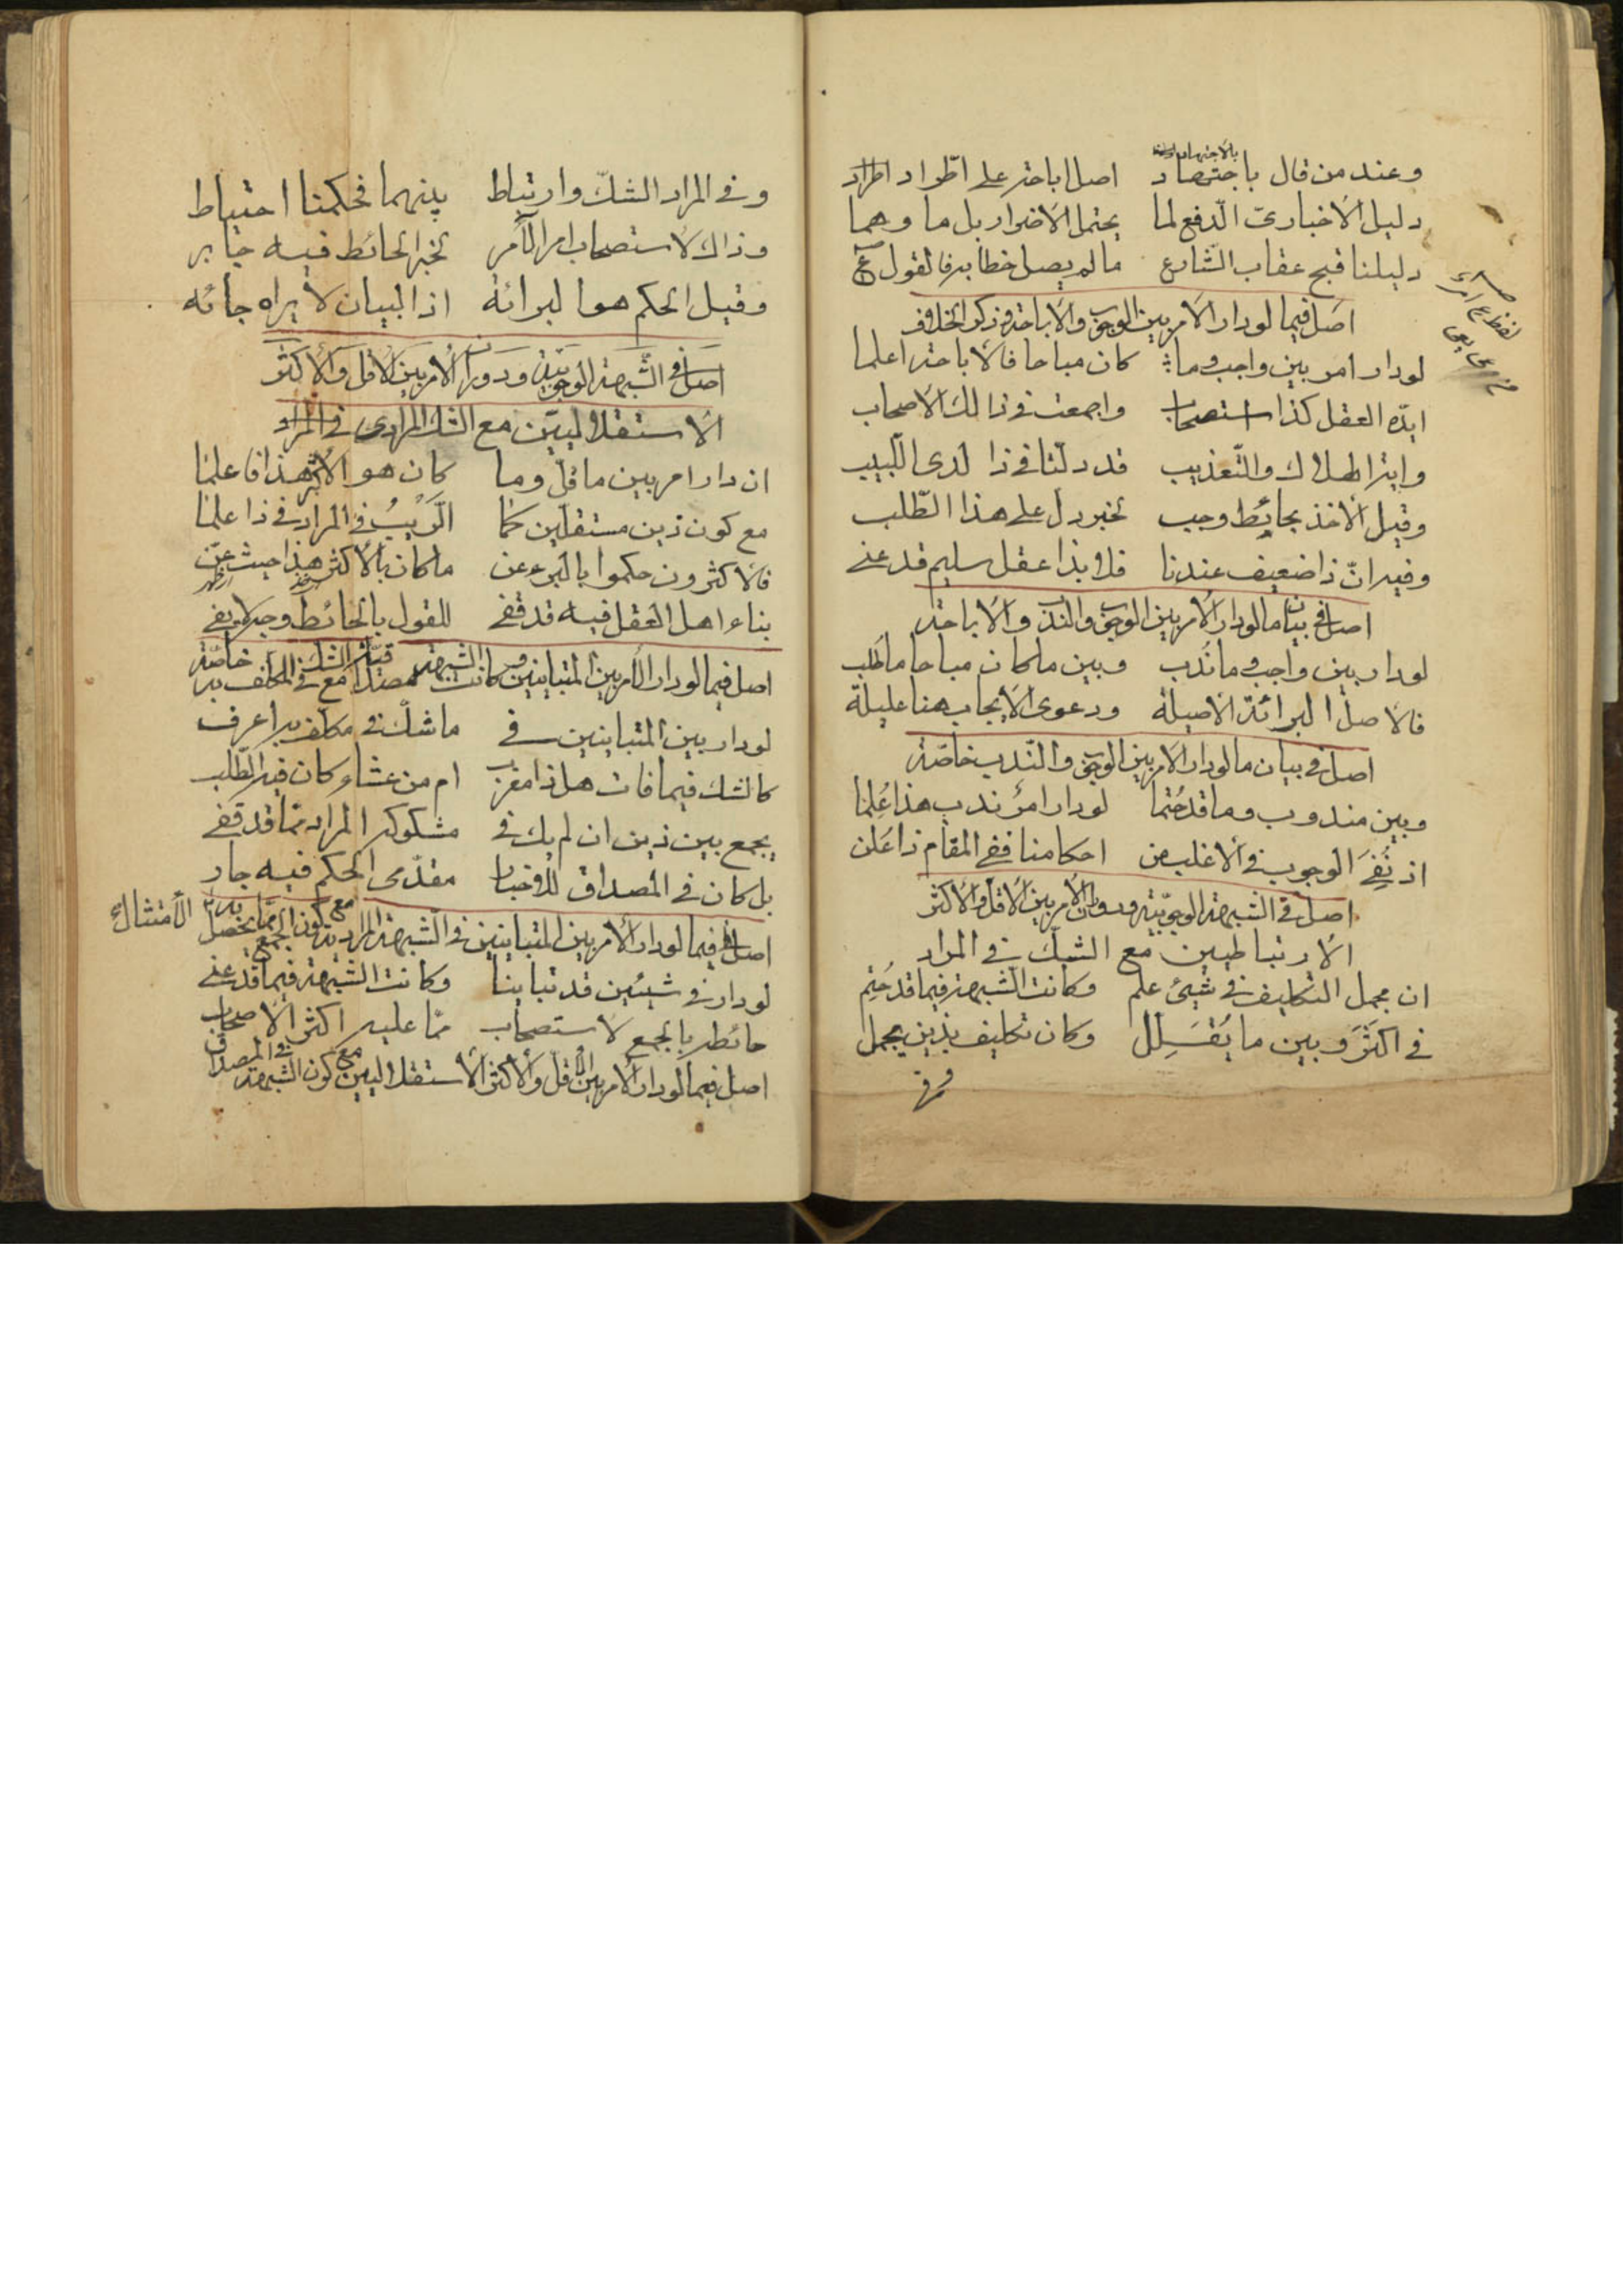 وعند من قال باجتهاد اصل اباحته على اطّراد
دليل الاخباريّ الدّفع لما يحتمل الاضرار بل ما وهما
دليلنا قبح عقاب الشّارع ما لم يصل خطابه فالقول
اصل فيما لو دار الامر بين الوجوب والاباحة وذكر الخلاف
لو دار امر بين واجب وما كان مباحا فالاباحة اعلما
ايّده العقل كذا استصحاب واجمعت في ذالك الاصحاب
واية اهلاك والتّعذيب قد دلّتا في ذا لدى اللّبيب
وقيل الاخذ بحائط وجب لخبر دلّ على هذا الطّلب
وفيه انّ ذا ضعيف عندنا فلا بذا عقل سليم قد عنى
اصل في بيان ما لو دار الامر بين الوجوب والندب والاباحة
لو دار بين واجب وما ندب وبين ما كان مباحا ما طلب
فالاصل البرائة الاصيلة ودعوى الايجاب هنا عليلة
اصل في بيان ما لو دار الامر بين الوجوب والنّدب خاصّة
وبين مندوب وما قد حُتما لو دار امرٌ ندب هذا عُلما
اذ نُفِيَ الوجوب في الاغلب من احكامنا ففي المقام ذا عَلن
اصل في الشبهة الوجوبيّة ودوران الامر بين الاقل والاكثر
الارتباطيين مع الشكّ في المراد
ان مجمل التكليف في شيئ علم وكانت الشبهة فيما قد حُتِم
في اكثَرَ وبين ما يُقَلِّل وكان تكليف بذين يجمل
وفي
وفي المراد الشكّ وارتباط بينهما فحكمنا احتياط
وذاك لاستصحاب امر الآمر لخبر الحائط فيه جابر
وقيل الحكم هو البرائة اذ البيان لا يراه جائه
اصل في الشّبهة الوجوبيّة ودوران الامر بين الاقل والاكثر
الاستقلاليّين مع الشك المرادى في المراد
ان دار امر بين ما قلّ وما كان هو الاكثر هذا فاعلما
مع كون ذين مستقلّين كما الرّيبُ في المراد في ذا علما
فالاكثرون حكموا بالبرء عن ما كان بالاكثر هذا حيث عنّ
بناء اهل العقل فيه قد قفى للقول بالحائط وجه لا يفي
اصل فيما لو دار الامر بين المتباينين وكانت الشبهة مصداقيّة مع الشك في المكلف به خاصّة
لو دار بين المتباينين في ما شكّ في مكلف به اعرف
كالشك فيما فات هل ذا مغرب ام من عشاء كان فيه الطّلب
يجمع بين ذين ان لم يك في مشكوكه المراد ممّا قد قفى
بل كان في المصداق للاخبار مقدّمى الحكم فيه جار
اصل فيما لو دار الامر بين المتباينين في الشّبهة المراديّة مع كون الجمع ممّا يحصل به الامتثال
لو دار في شيئين قد تباينا وكانت الشبهة فيما قد عنى
حائطه بالجمع لاستصحاب ممّا عليه اكثر الاصحاب
اصل فيما لو دار الامر بين الاقل والاكثر الاستقلاليين مع كون الشبهة في المصداق